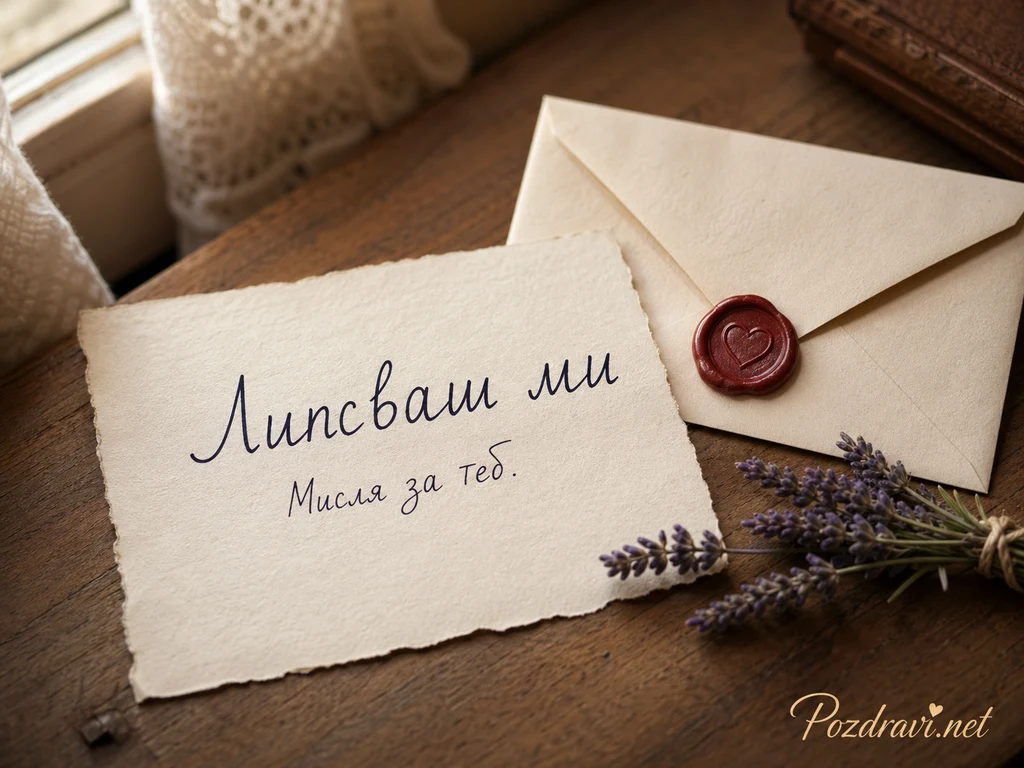 Липсваш ми
Мисля за теб.
Pozdravi.net